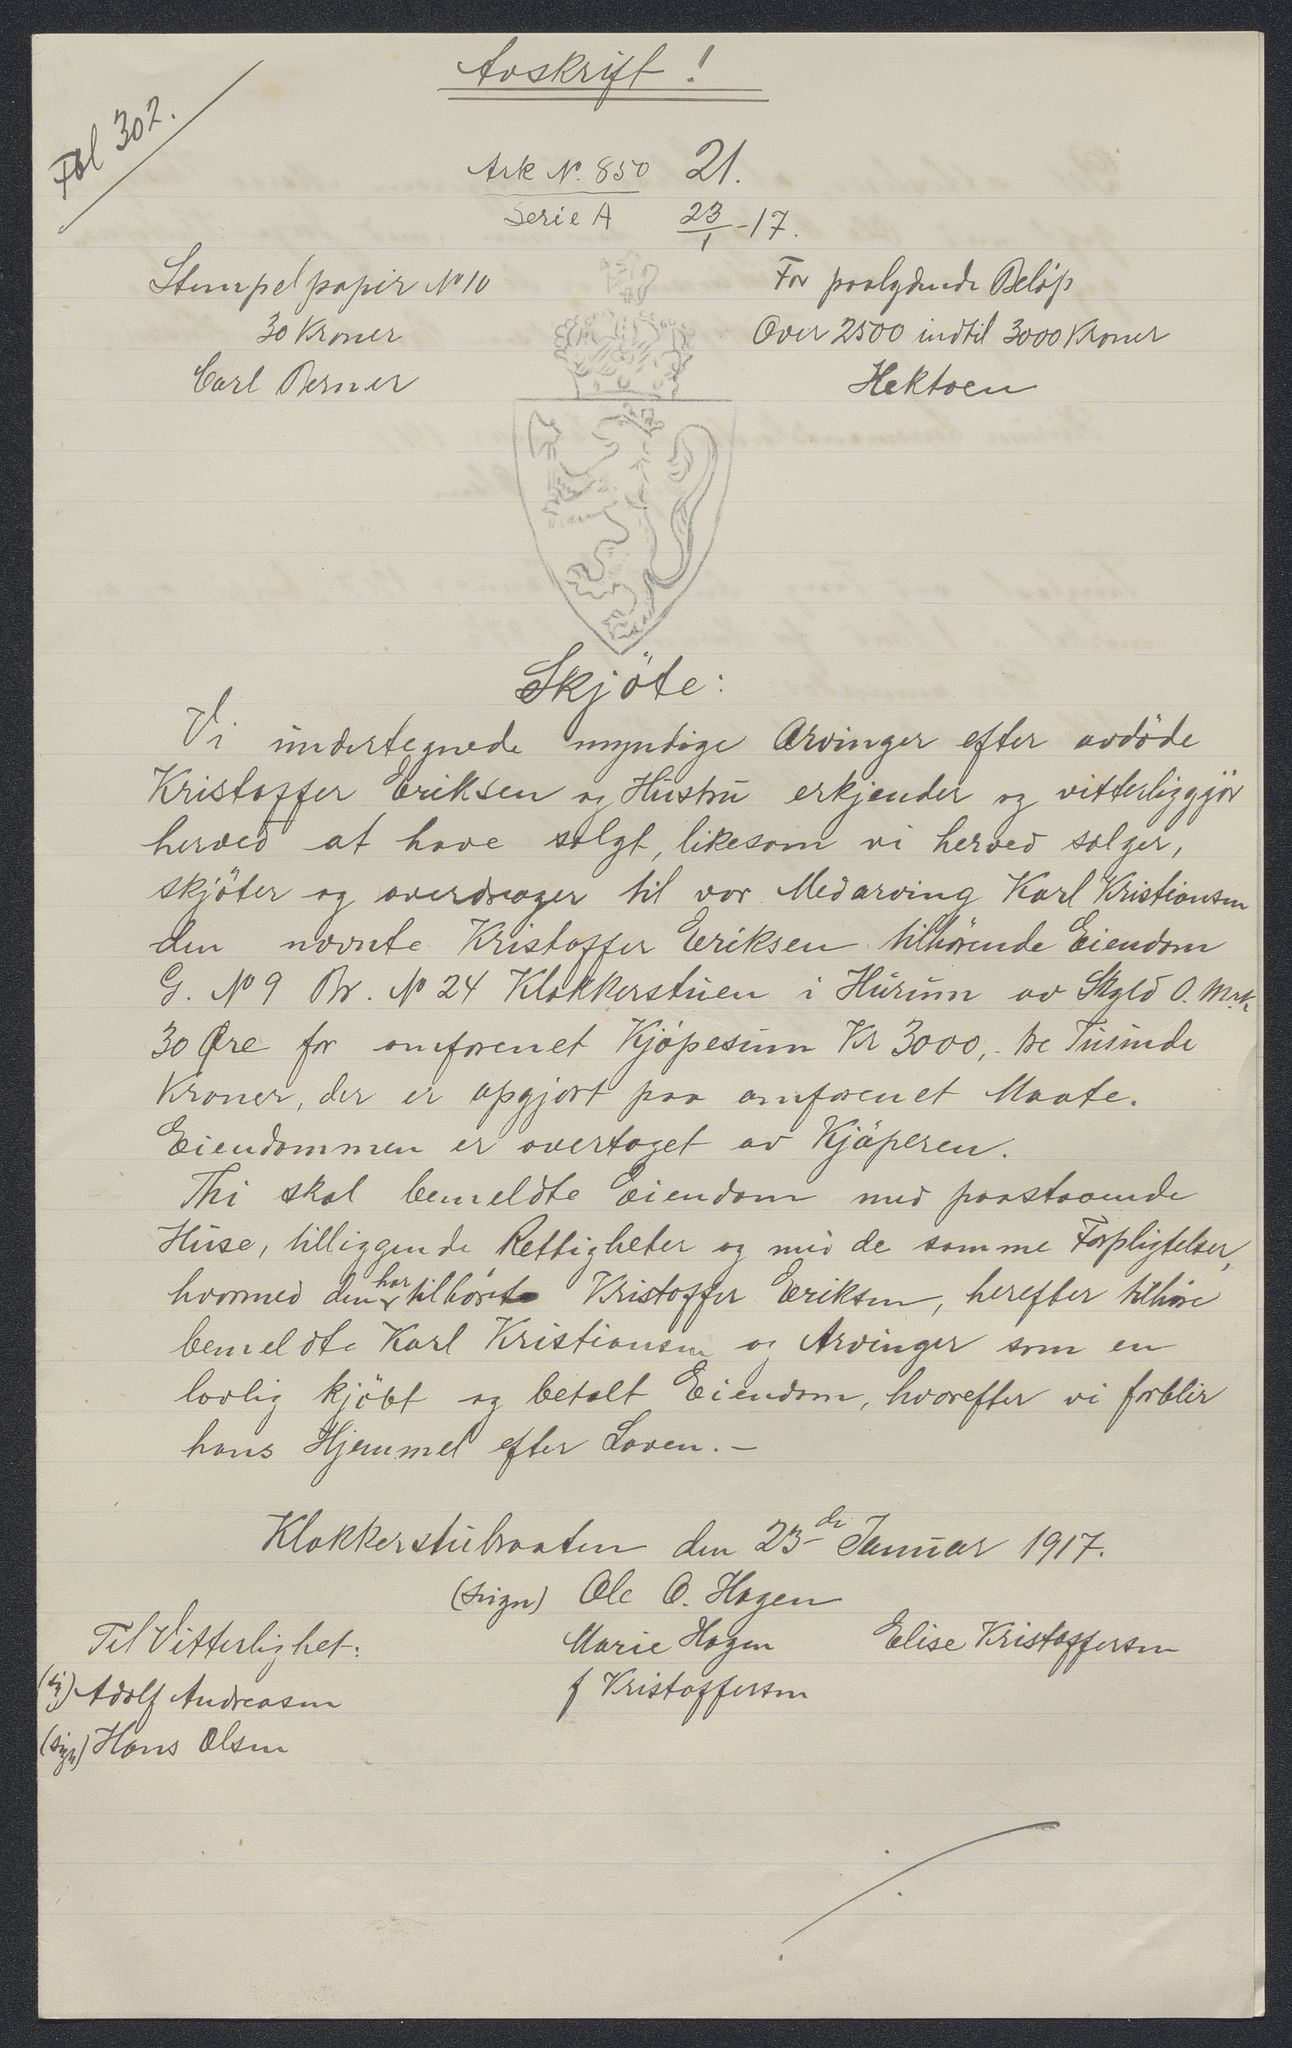 Avskrift!
Fol 302.
Ark No. 850 21.
Serie A 23/1-17.
Stempelpapir No 10
30 Kroner
Carl Berner
For paalydende Beløp
Over 2500 indtil 3000 Kroner
Hektoen
Skjöte:
Vi undertegnede myndige Arvinger efter avdöde
Kristoffer Eriksen og Hustru erkjender og vitterliggjör
herved at have solgt, likesom vi herved sælger,
skjöter og overdrager til vor Medarving Karl Kristiansen
den nævnte Kristoffer Eriksen tilhörende Eiendom
G. No 9 Br. No 24 Klokkerstuen i Hurum av Skyld 0. Mrk
30 Øre for omforenet Kjöpesum Kr 3000,- tre Tusinde
Kroner, der er opgjort paa omforenet Maate.
Eiendommen er overtaget av Kjöperen.
Thi skal bemeldte Eiendom med paastaaende
Huse, tilliggende Rettigheter og med de samme Forpligtelser,
hvormed den har tilhört Kristoffer Eriksen, herefter tilhöre
bemeldte Karl Kristiansen og Arvinger som en
lovlig kjöbt og betalt Eiendom, hvorefter vi forblir
hans Hjemmel efter Loven.-
Klokkerstubraaten den 23de Januar 1917.
(sign) Ole O. Hagen
Til Vitterlighet: Marie Hagen Elise Kristoffersen
Adolf Andreasen f Kristoffersen
(sign) Hans Olsen